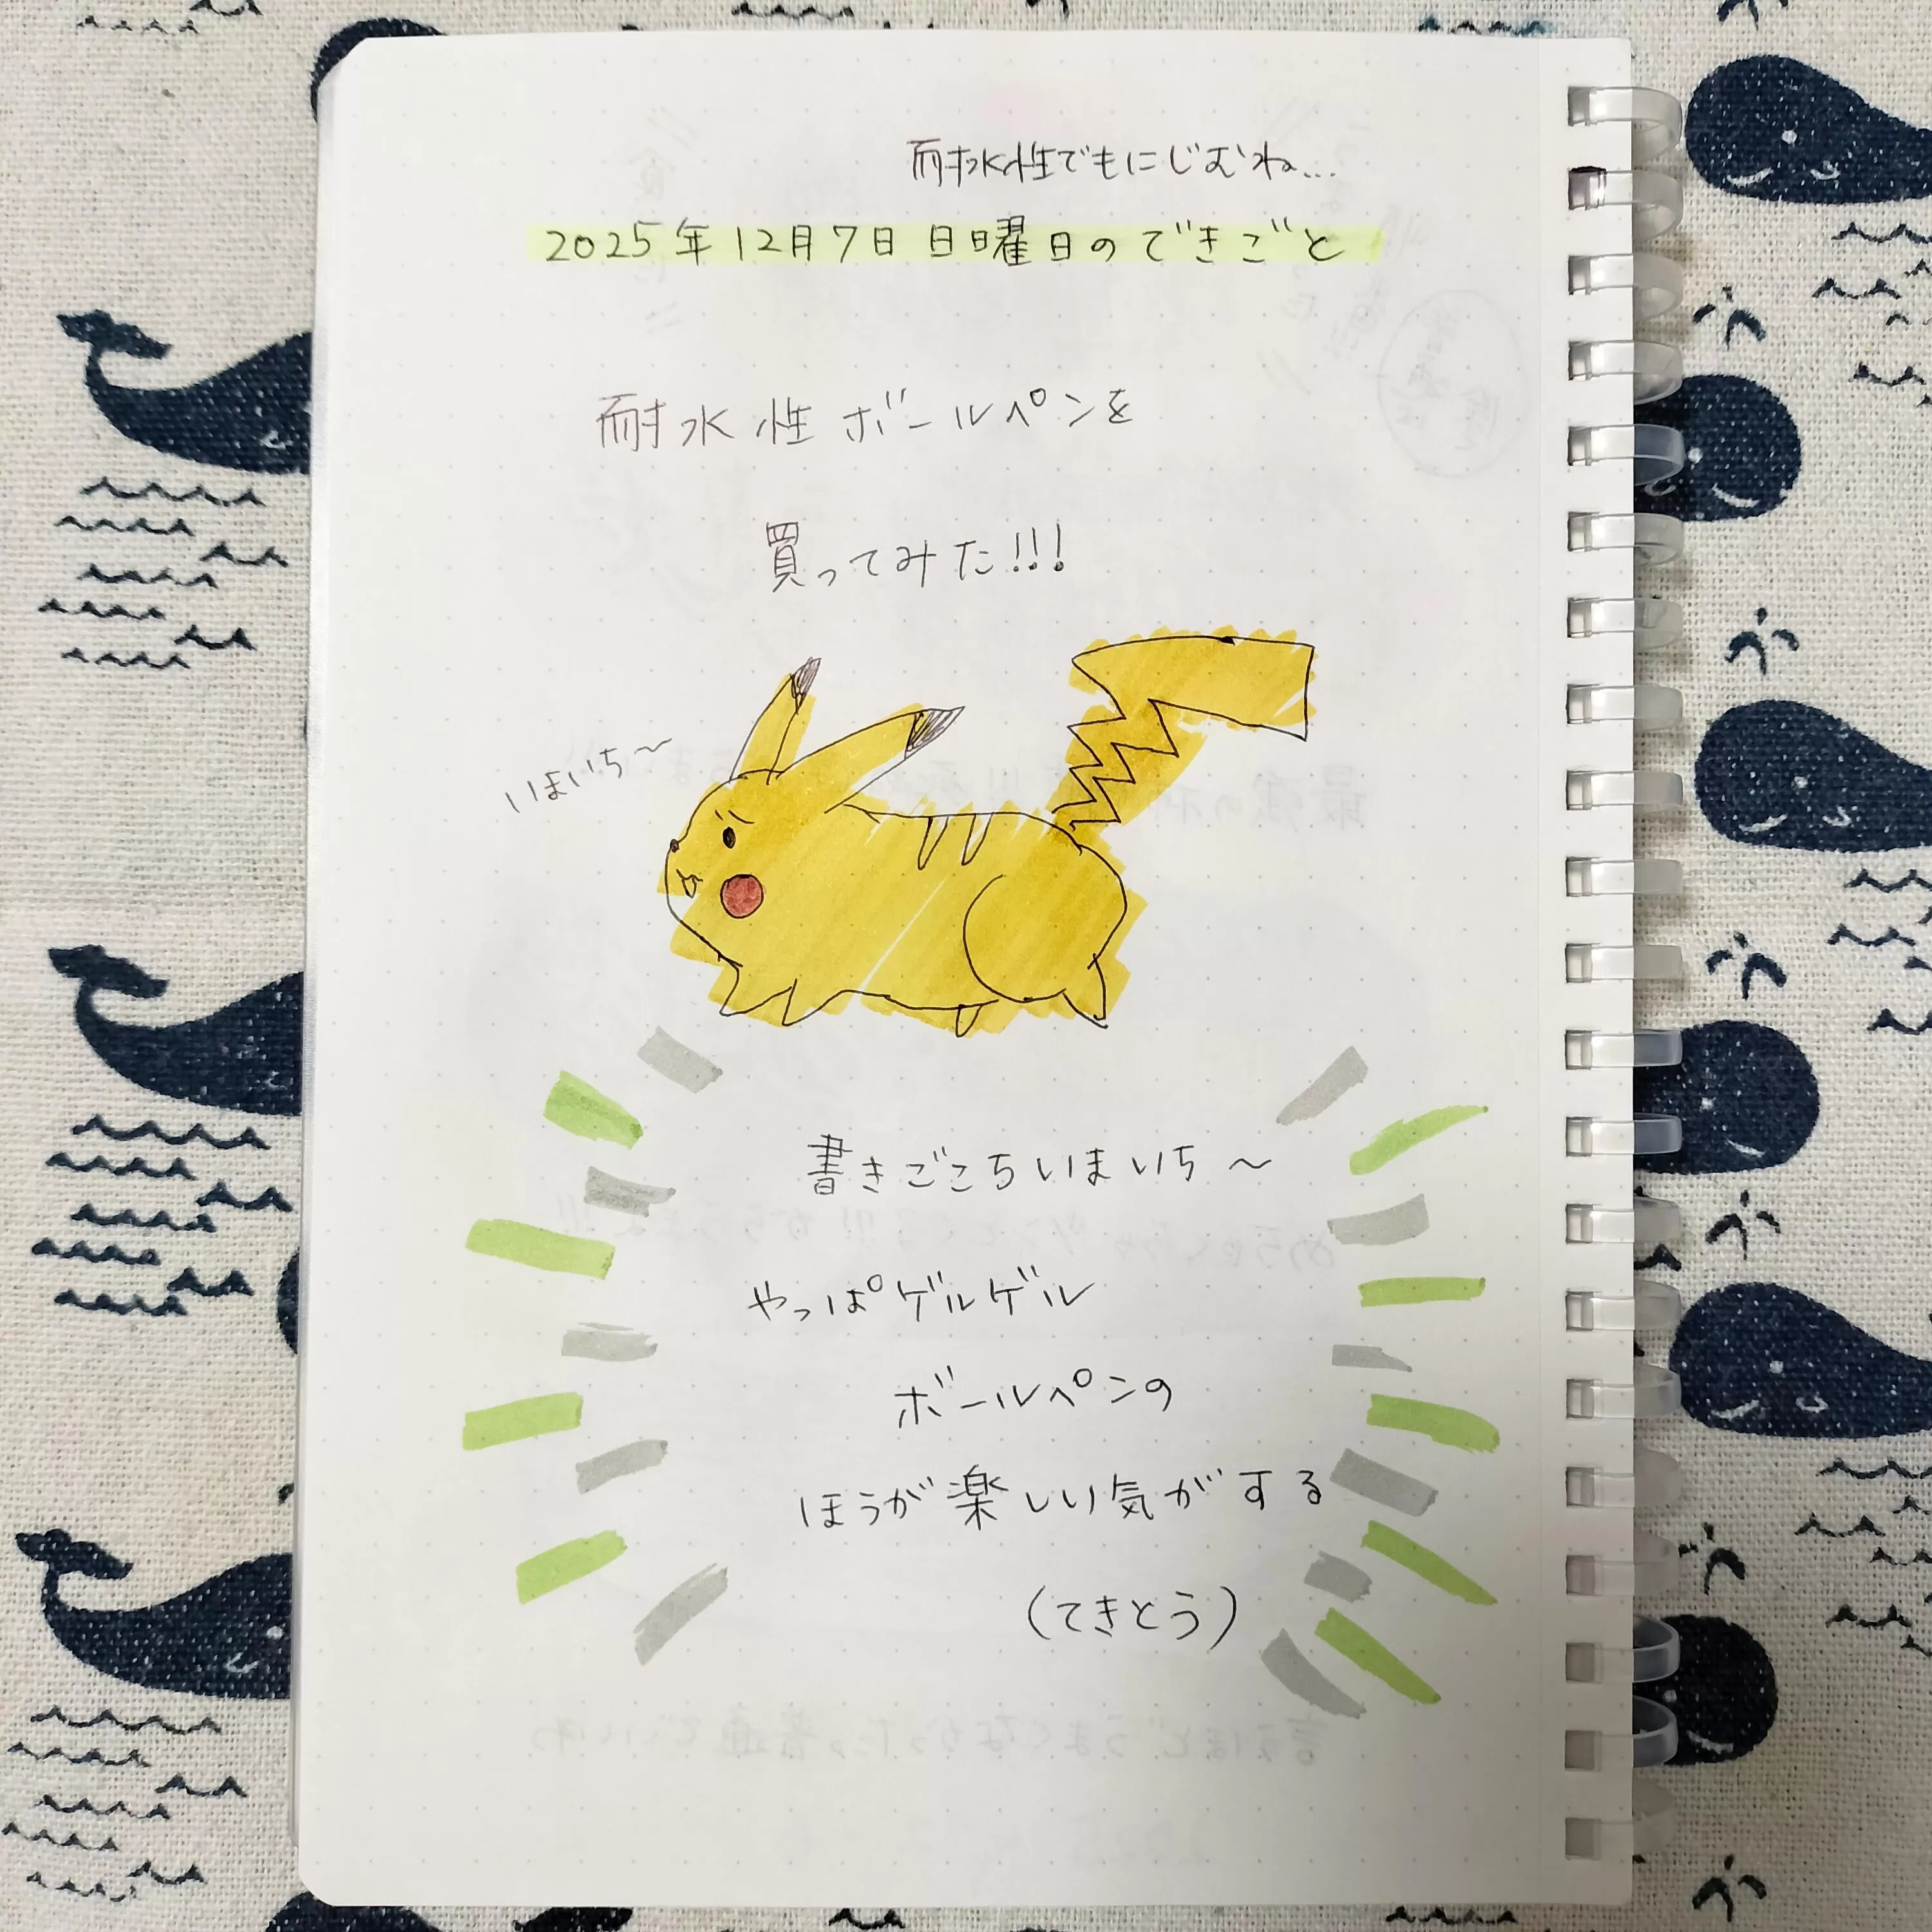 耐水性でもにじむね…
2025年12月7日 日曜日のできごと
耐水性ボールペンを
買ってみた!!!
いまいち〜
書きごこちいまいち〜
やっぱゲルゲル
ボールペンの
ほうが楽しい気がする
(てきとう)